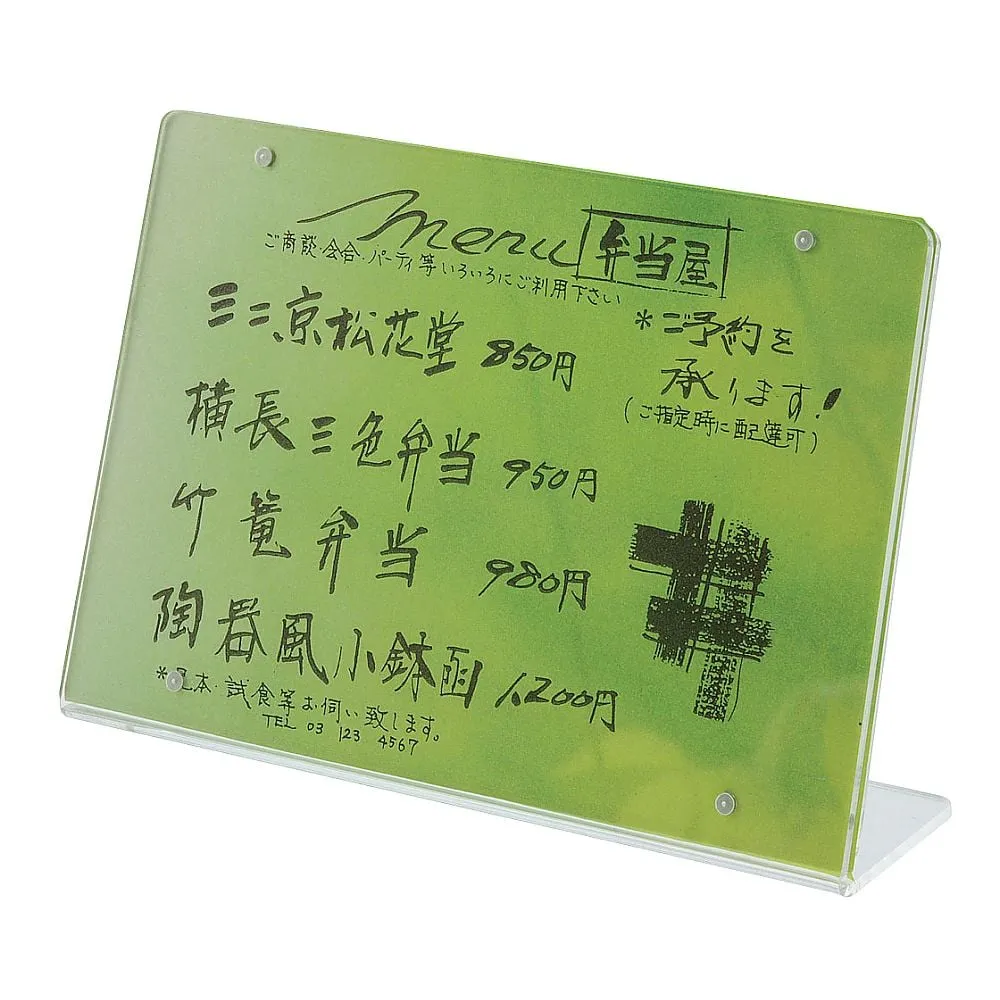 menu 弁当屋
ご商談・会合・パーティ等いろいろにご利用下さい
ミニ京松花堂 850円
横長三色弁当 950円
竹篭弁当 980円
陶器風小鉢函 1,200円
*見本・試食等お伺い致します。
TEL 03 123 4567
*ご予約を
承ります!
(ご指定時に配達可)